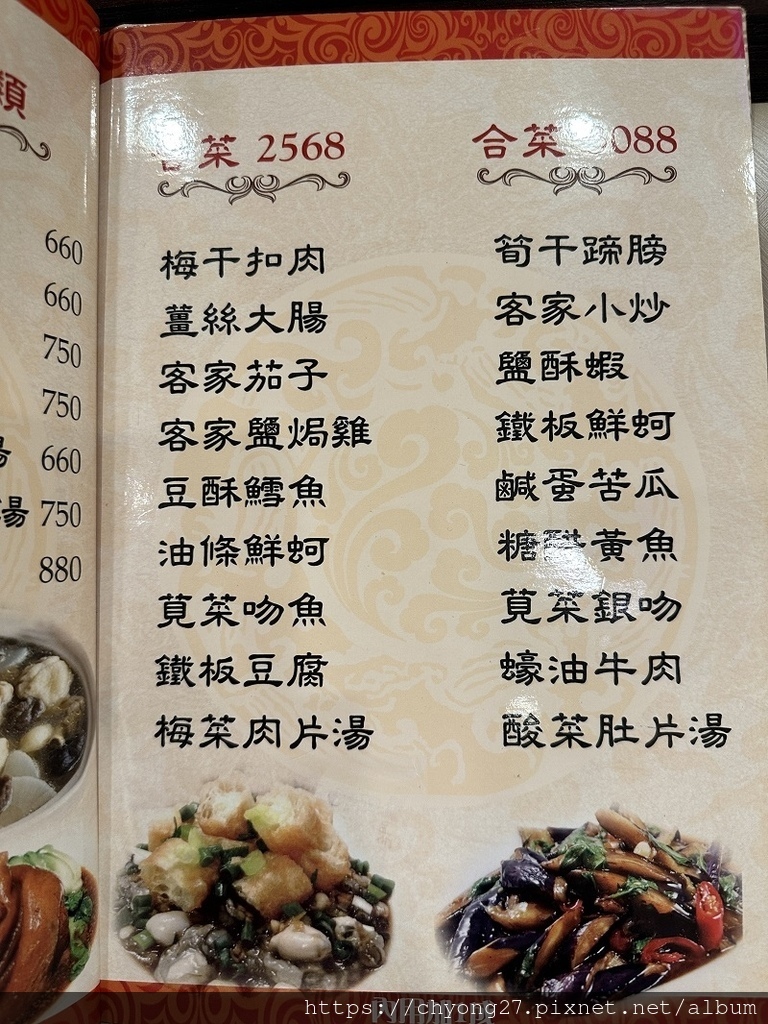 類
660
660
750
750
湯 660
湯 750
880
合菜 2568
梅干扣肉
薑絲大腸
客家茄子
客家鹽焗雞
豆酥鱈魚
油條鮮蚵
莧菜吻魚
鐵板豆腐
梅菜肉片湯
合菜 088
筍干蹄膀
客家小炒
鹽酥蝦
鐵板鮮蚵
鹹蛋苦瓜
糖醋黃魚
莧菜銀吻
蠔油牛肉
酸菜肚片湯
https://chyong27.pixnet.net/album